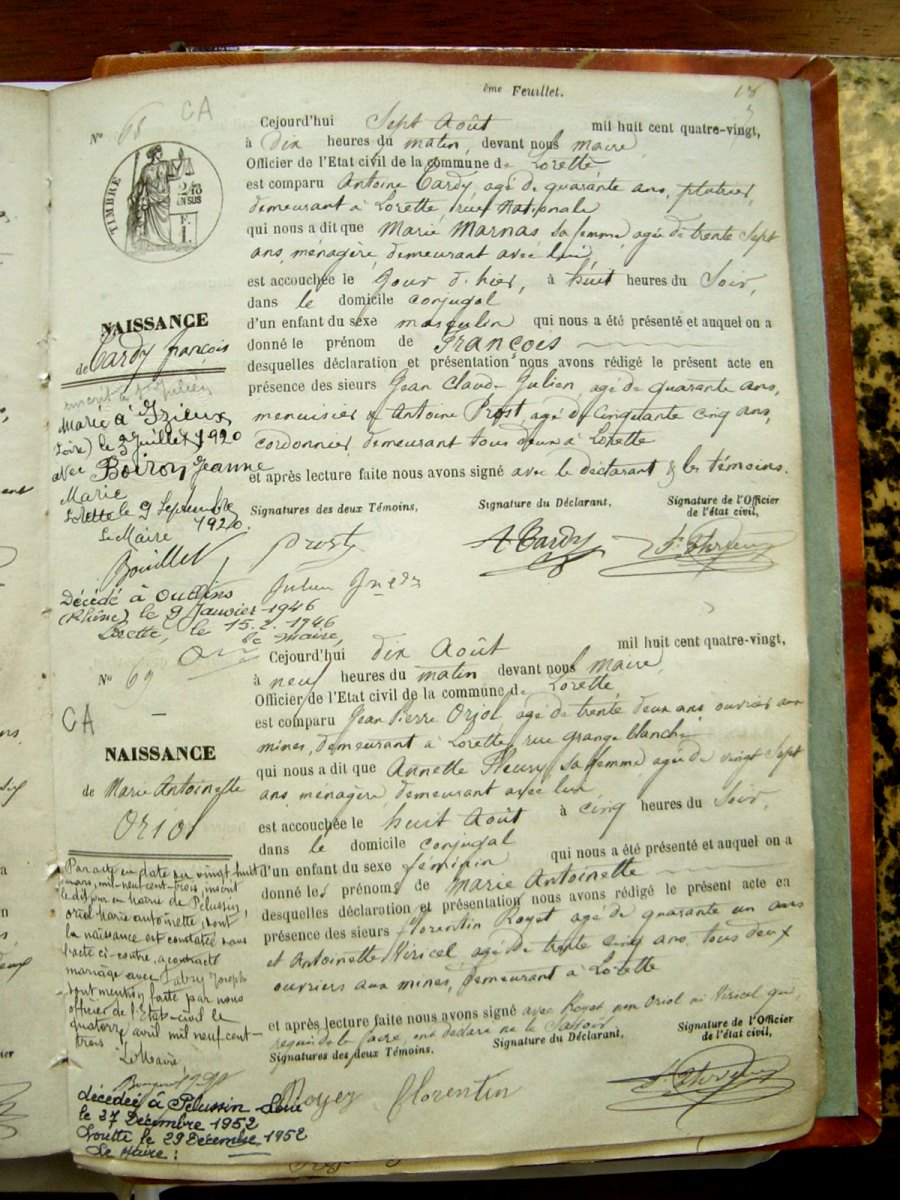 ème Feuillet.
18
CA
N° 68
TIMBRE
2/3
EN SUS
Cejourd'hui Sept Août mil huit cent quatre-vingt,
à dix heures du matin, devant nous maire
Officier de l'Etat civil de la commune de Lorette
est comparu Antoine Tardy, agé de quarante ans, platrier,
demeurant à Lorette, rue Nationale
qui nous a dit que Marie Marnas sa femme, agée de trente Sept
ans, ménagère, demeurant avec lui,
est accouchée le jour d'hier, à huit heures du Soir,
dans le domicile conjugal
d'un enfant du sexe masculin qui nous a été présenté et auquel on a
donné le prénom de François
desquelles déclaration et présentation nous avons rédigé le présent acte en
présence des sieurs Jean Claude Julien, agé de quarante ans,
menuisier et Antoine Prost, agé de Cinquante cinq ans,
cordonnier, demeurant tous deux à Lorette
et après lecture faite nous avons signé avec le déclarant & les témoins.
Signatures des deux Témoins,
Signature du Déclarant,
Signature de l'Officier
de l'état civil,
Prost
A Tardy
Julien
NAISSANCE
de Tardy françois
Marié à Izieux
(Loire) le 3 juillet 1920
avec Boiron Jeanne
Marie
Lorette le 9 Septembre
1920.
Le Maire
Bouillet
Décédé à Oullins
(Rhône) le 9 Janvier 1946
Lorette, le 15.2.1946
Le Maire,
N° 69
CA
NAISSANCE
de Marie Antoinette
Oriol
Cejourd'hui dix Août mil huit cent quatre-vingt,
à neuf heures du matin devant nous maire
Officier de l'Etat civil de la commune de Lorette
est comparu Jean Pierre Oriol, agé de trente deux ans, ouvrier aux
mines, demeurant à Lorette, rue grange blanche
qui nous a dit que Annette Fleury sa femme, agée de vingt Sept
ans, ménagère, demeurant avec lui,
est accouchée le huit Août à cinq heures du Soir,
dans le domicile conjugal
d'un enfant du sexe féminin qui nous a été présenté et auquel on a
donné les prénoms de Marie Antoinette
desquelles déclaration et présentation nous avons rédigé le présent acte en
présence des sieurs florentin Royet agé de quarante un ans
et Antoinette Viricel, agé de trente cinq ans, tous deux
ouvriers aux mines, demeurant à Lorette
et après lecture faite nous avons signé avec Royet, non Oriol ni Viricel qui,
requis de le faire, ont déclaré ne le Savoir,
Signatures des deux Témoins,
Signature du Déclarant,
Signature de l'Officier
de l'état civil,
Royer florentin
Par acte en date du vingt huit
mars, mil neuf cent-trois, inscrit
le dit jour en mairie de Pélussin,
Oriol Marie antoinette, dont
la naissance est constatée dans
l'acte ci-contre, a contracté
mariage avec Fabry Joseph
dont mention faite par nous
officier de l'Etat-civil le
quatorze avril mil neuf cent-
trois
Le Maire
décédée à Pélussin Loire
le 27 Décembre 1952
Lorette le 29 Décembre 1952
Le Maire :